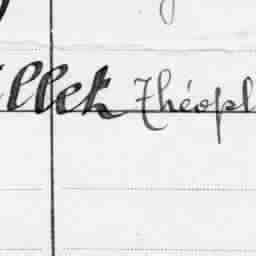 illet Théoph